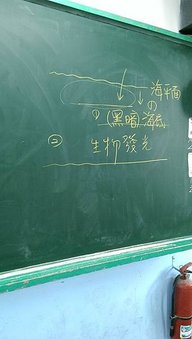 海平面
①
(黑暗)海底
② 生物發光